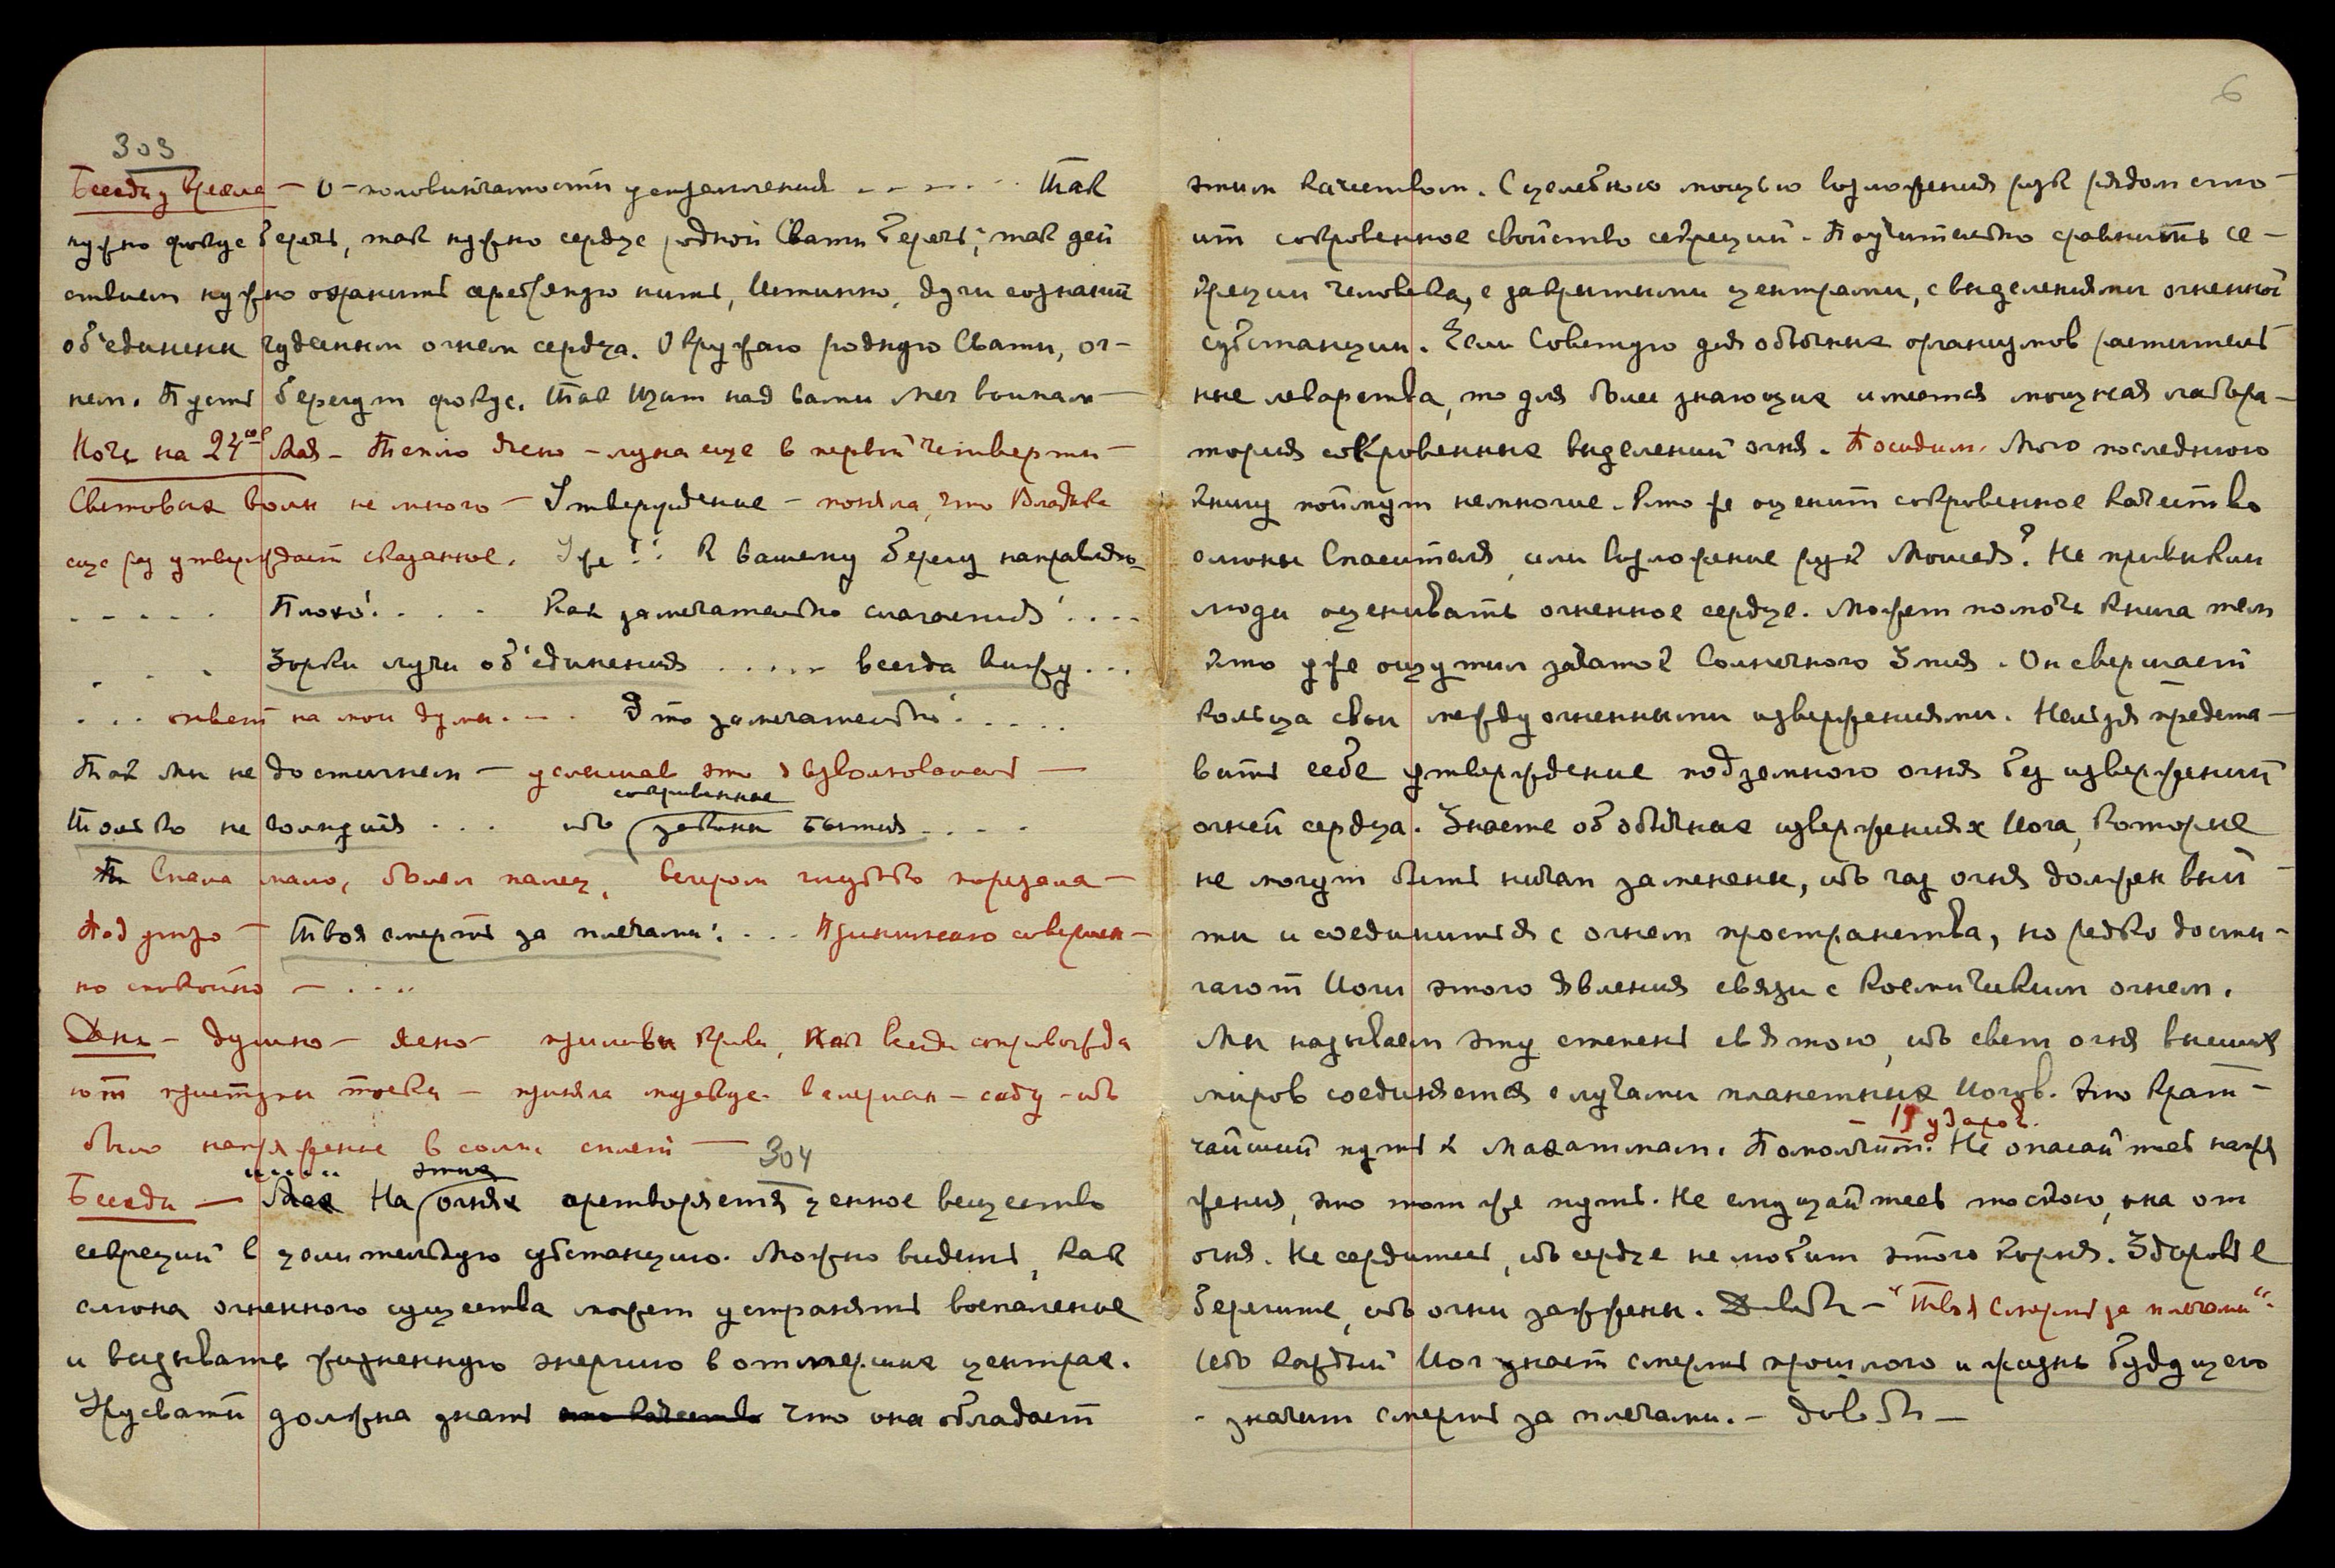 6
303
Беседа Урсела – О половинчатости устремления ....... Так
нужно фокус беречь, так нужно сердце родной Свати беречь; так дей
ствием нужно охранить серебряную нить, Истинно, духи сознаний
об'единены чудесным огнем сердца. Окружаю родную Свати, ог–
нем. Пусть берегут фокус. Так Щит над вами Меч воинам –
Ночь на 24ое Мая – Тепло ясно – луна еще в первой четверти –
Световых волн не много – Утверждение – поняла, что Владыка
еще раз утверждает сказанное. Уже!! К вашему берегу направляю
..... Плохо!.... Как замечательно слагаемые!....
... Зорки лучи об'единения ..... всегда вижу...
... ответ на мои думы... Это замечательно!.....
Так Мы не достигнем – услышав это я взволновалась –
сокровенные
Только не волнуйся ... ибо законы Бытия ....
Спала мало, болел палец, вечером глубоко порезала –
Под утро – Твоя смерть за плечами!... Принимаю совершен–
но спокойно – ....
День – душно – ясно – приливы крови, как всегда сопровожда
ют приступы тоски – приняла мускус. валериан – соду – ибо
было напряжение в солн. сплет –
304
этих
Беседа – На огнях претворяется ценное вещество
секреций в целительную субстанцию. Можно видеть, как
слюна огненного существа может устранять воспаление
и вызывать жизненную энергию в отмерших центрах.
Урусвати должна знать это качество что она обладает
этим качеством. С целебною мощью возложения рук рядом сто–
ит сокровенное свойство секреций. Поучительно сравнить се–
креции человека, с закрытыми центрами, с выделениями огненной
субстанции. Если Советую для обычных организмов раститель
ные лекарства, то для более знающих имеется мощная лабора–
тория сокровенных выделений огня. Посидим. Мою последнюю
книгу поймут немногие. Кто же оценит сокровенное качество
слюны Спасителя, или возложение рук Моисея? Не привыкли
люди оценивать огненное сердце. Может помочь книга тем
кто уже ощутил завиток Солнечного Змия. Он свершает
кольца свои между огненными извержениями. Нельзя предста–
вить себе утверждение подземного огня без извержений
огней сердца. Знаете об обычных извержениях Иога, которые
не могут быть ничем заменены, ибо газ огня должен вый–
ти и соединиться с огнем пространства, но редко дости–
гают Иоги этого явления связи с Космическим огнем.
Мы называем эту степень святою, ибо свет огня высших
миров соединяется с лучами планетных Иогов. Это крат–
– 19 ударов.
чайший путь к Махатмам. Помолчим. Не опасайтесь напря
жения, это тот же путь. Не смущайтесь тоскою, она от
огня. Не сердитесь, ибо сердце не любит этого корня. Здоровье
берегите, ибо огни зажжены. Довольно – "Твоя Смерть за плечами".
Ибо каждый Иог знает смерть прошлого и жизнь будущего
– значит смерть за плечами. – Довольно –